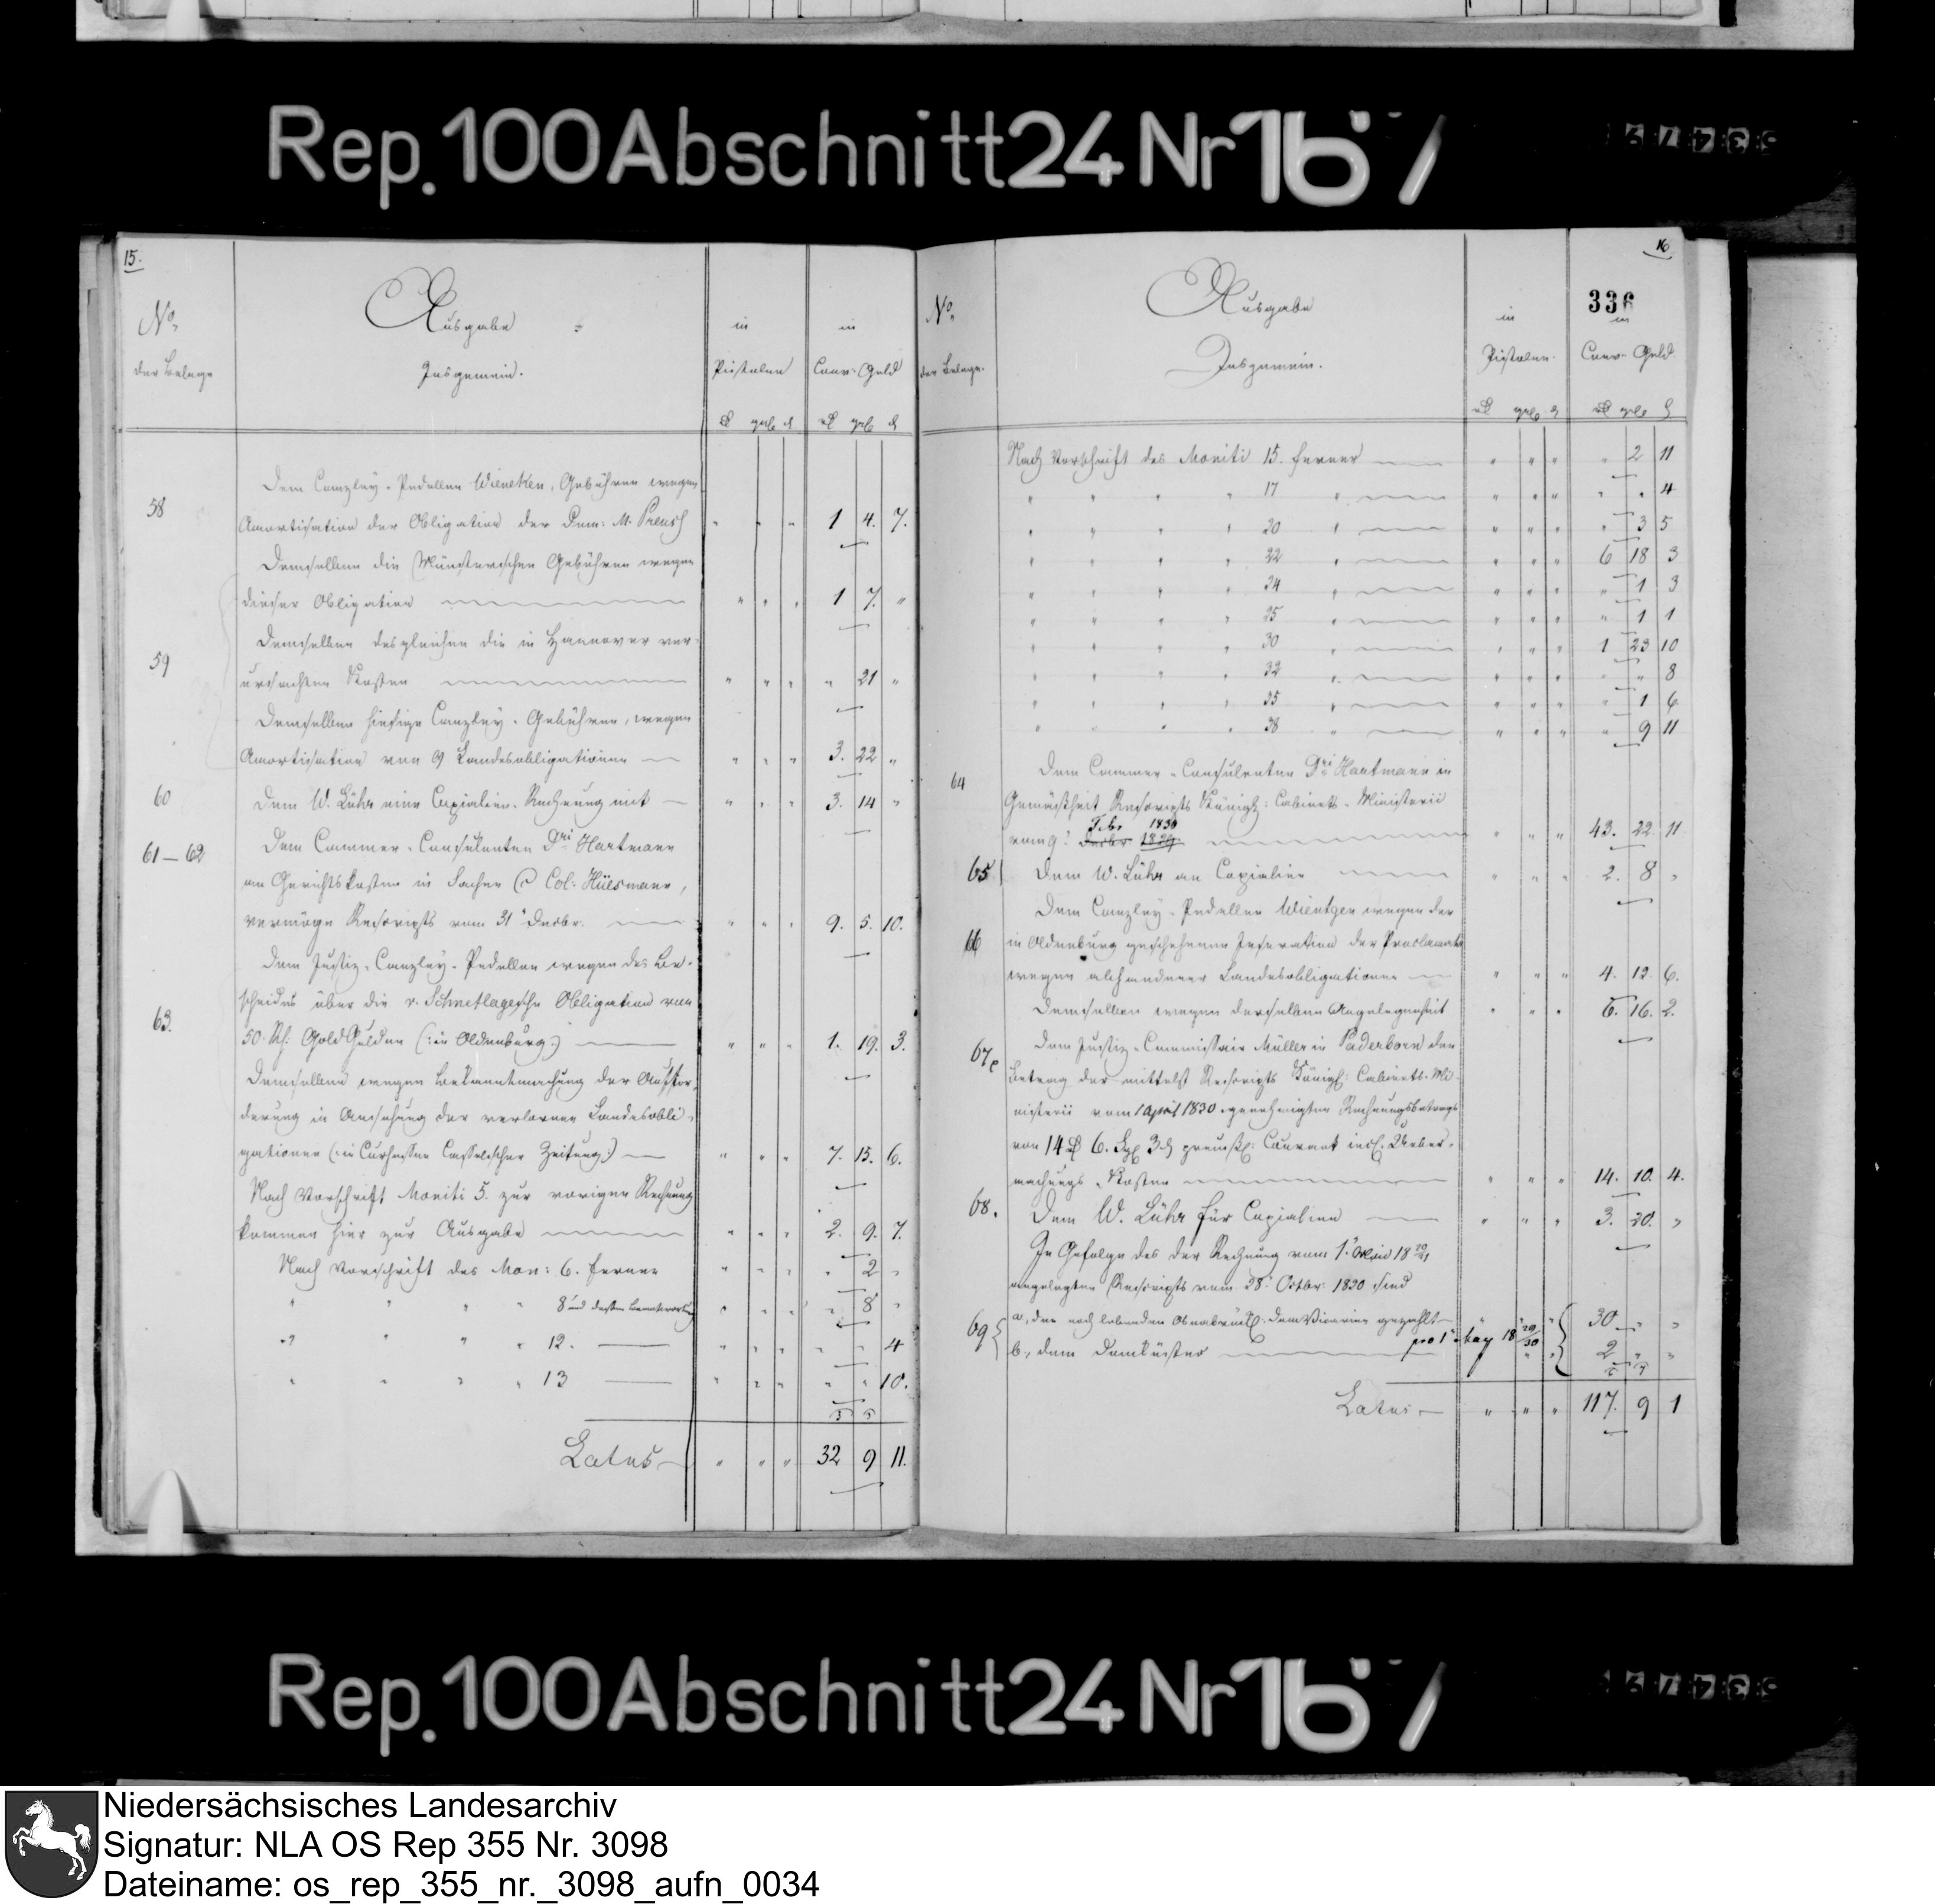 Rep.100 Abschnitt 24 Nr 167
53479
15.
No.
der Belege
Ausgabe
Insgemein.
in
Pistolen
in
Conv. Geld
rt ggr d rt ggr d
Dem Canzley-Pedellen Wiencken, Gebühren wegen
58 Amortisation der Obligation der Dem: M. Preuss " " " 1 4. 7.
Demselben die Münsterschen Gebühren wegen
dieser Obligation " " " 1 7. "
Demselben desgleichen die in Hannover ver-
59 ursachten Kosten " " " " 21 "
Demselben hiesige Canzley-Gebühren, wegen
Amortisation von 9 Landesobligationen " " " 3. 22 "
60 Dem W. Lühr eine Copialien-Rechnung mit " " " 3. 14 "
61–62 Dem Cammer-Consulenten Dri Hartmann
an Gerichtskosten in Sachen Col: Hüesmann,
vermöge Rescripts vom 31t Decbr. " " " 9. 5. 10.
Dem Justiz-Canzley-Pedellen wegen des Be-
scheides über die v. Schmetlagesche Obligation von
63. 50 Rh: Gold Gulden (: in Oldenburg :) " " " 1. 19. 3.
Demselben wegen Bekanntmachung der Auffor-
derung in Ansehung der verlornen Landesobli-
gationen (: in Curhessen Casselscher Zeitung :) " " " 7. 15. 6.
Nach Vorschrift Moniti 5. zur vorigen Rechnung
kommen hier zur Ausgabe " " " 2. 9. 7.
Nach Vorschrift des Mon: 6. ferner " " " " 2 "
" " " " 8 und dessen Beantwortung " " " " 8 "
" " " " 12. " " " " " 4
" " " " 13 " " " " " 10.
Latus " " " 32 9 11.
16
336
No.
der Belege.
Ausgabe
Insgemein.
in
Pistolen.
in
Conv. Geld
rt ggr d rt ggr d
Nach Vorschrift des Moniti 15. ferner " " " " 2 11
" " " " 17 " " " " " " 4
" " " " 20 " " " " " 3 5
" " " " 22 " " " " 6 18 3
" " " " 24 " " " " " 1 3
" " " " 25 " " " " " 1 1
" " " " 30 " " " " 1 23 10
" " " " 32 " " " " " " 8
" " " " 35 " " " " " 1 6
" " " " 38 " " " " " 9 11
64 Dem Cammer-Consulenten Dri Hartmann in
Gemäsheit Rescripts Königl: Cabinets-Ministerii
Febr 1830
vom 9t Decbr 1829 " " " 43. 22 11
65 Dem W. Lühr an Copialien " " " 2. 8 "
Dem Canzley-Pedellen Wientgen wegen der
66 in Oldenburg geschehenen Insertion der Proclamata
wegen abhandener Landesobligationen " " " 4. 12. 6.
Demselben wegen derselben Angelegenheit " " " 6. 16. 2.
67 Dem Justiz-Commissair Müller in Paderborn den
Betrag der mittelst Rescripts Königl: Cabinets-Mi-
nisterii vom 1 April 1830 genehmigten Rechnungsbetrags
von 14 rt 6. Sgr 3 d preuss: Courant incl. Ueber-
machungs-Kosten " " " 14. 10. 4.
68. Dem W. Lühr für Copialien " " " 3. 20. "
In Gefolge des der Rechnung vom 1t Mai 18 20/21
angelegten Rescripts vom 28t Octbr: 1820 sind
69 a, den noch lebenden Osnabrück: Dom Vicarien gezahlt " " " 30 " "
pro 1t May 18 29/30
b, dem Domküster " " 2 " "
Latus " " " 117. 9 1
Rep.100 Abschnitt 24 Nr 167
53479
Niedersächsisches Landesarchiv
Signatur: NLA OS Rep 355 Nr. 3098
Dateiname: os_rep_355_nr._3098_aufn_0034